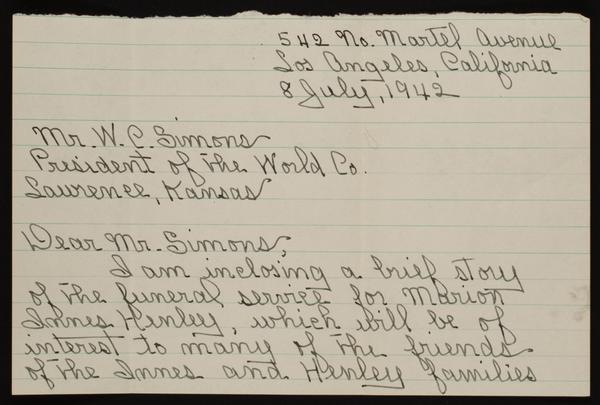 542 No. Martel Avenue
Los Angeles, California
8 July, 1942
Mr. W. C. Simons
President of the World Co.
Lawrence, Kansas
Dear Mr. Simons,
I am inclosing a brief story
of the funeral service for Marion
Innes Henley, which will be of
interest to many of the friends
of the Innes and Henley families